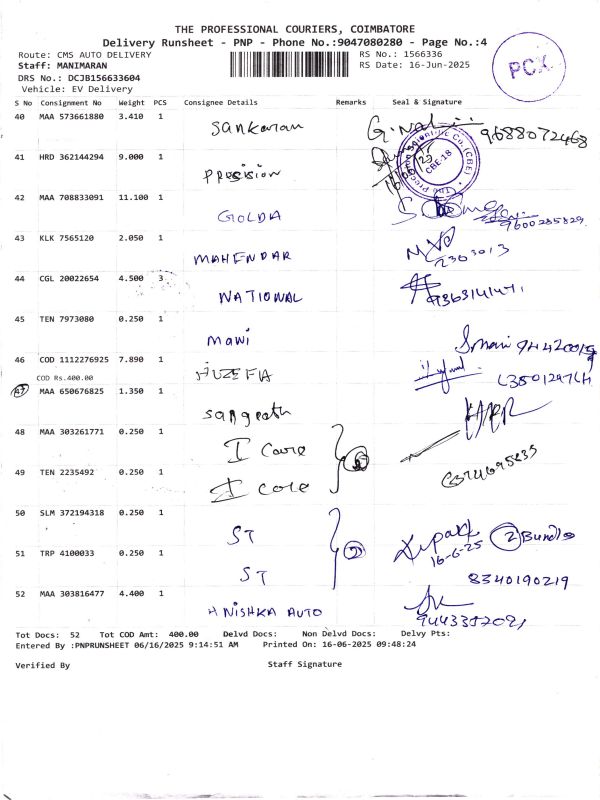 THE PROFESSIONAL COURIERS, COIMBATORE
Delivery Runsheet - PNP - Phone No.:9047080280 - Page No.:4
Route: CMS AUTO DELIVERY RS No.: 1566336
Staff: MANIMARAN RS Date: 16-Jun-2025
DRS No.: DCJB156633604
Vehicle: EV Delivery
PCX
S No Consignment No Weight PCS Consignee Details Remarks Seal & Signature
40 MAA 573661880 3.410 1
Sankaran 9688072468
41 HRD 362144294 9.000 1
Precision CBE-18
42 MAA 708833091 11.100 1
GOLDA 9600285829
43 KLK 7565120 2.050 1
MAHENDAR
44 CGL 20022654 4.500 3
NATIONAL
45 TEN 7973080 0.250 1
mani
46 COD 1112276925 7.890 1
COD Rs.400.00
HUZEFIA
47 MAA 650676825 1.350 1
Sangeeth
48 MAA 303261771 0.250 1
I Care
49 TEN 2235492 0.250 1
I care
50 SLM 372194318 0.250 1
ST
51 TRP 4100033 0.250 1
2 Bundle
16-6-25
ST 8340190219
52 MAA 303816477 4.400 1
HNISHKA AUTO
Tot Docs: 52 Tot COD Amt: 400.00 Delvd Docs: Non Delvd Docs: Delvy Pts:
Entered By :PNPRUNSHEET 06/16/2025 9:14:51 AM Printed On: 16-06-2025 09:48:24
Verified By Staff Signature